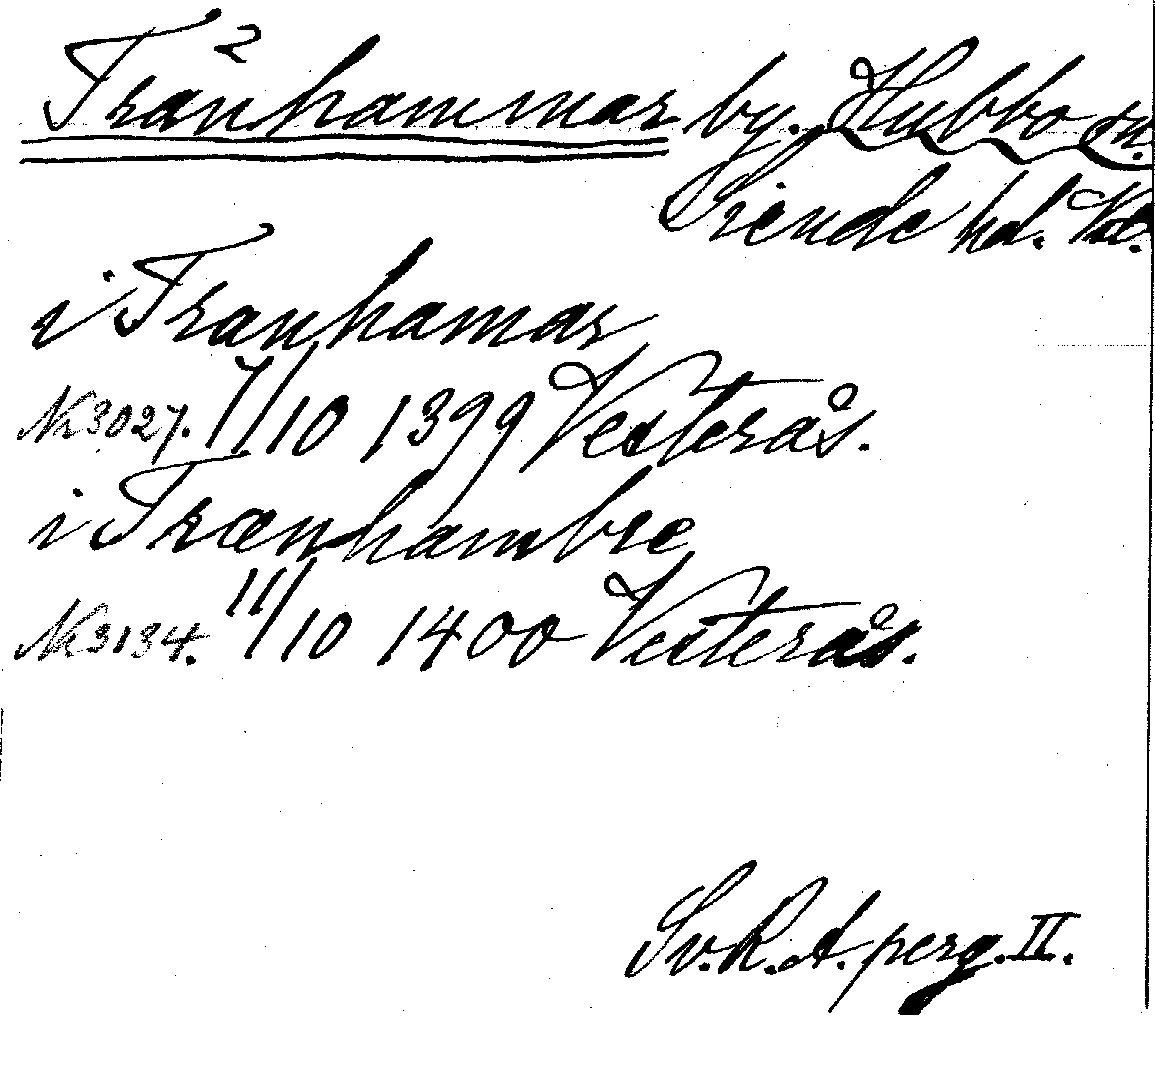 Tränhammar by. Hubbo sn.
Siende hd. Vstm.
i Tranhamar
Nr 3027. 7/10 1399 Vesterås.
i Trænhambre
Nr 3134. 11/10 1400 Vesterås.
Sv. R. A. perg. II.